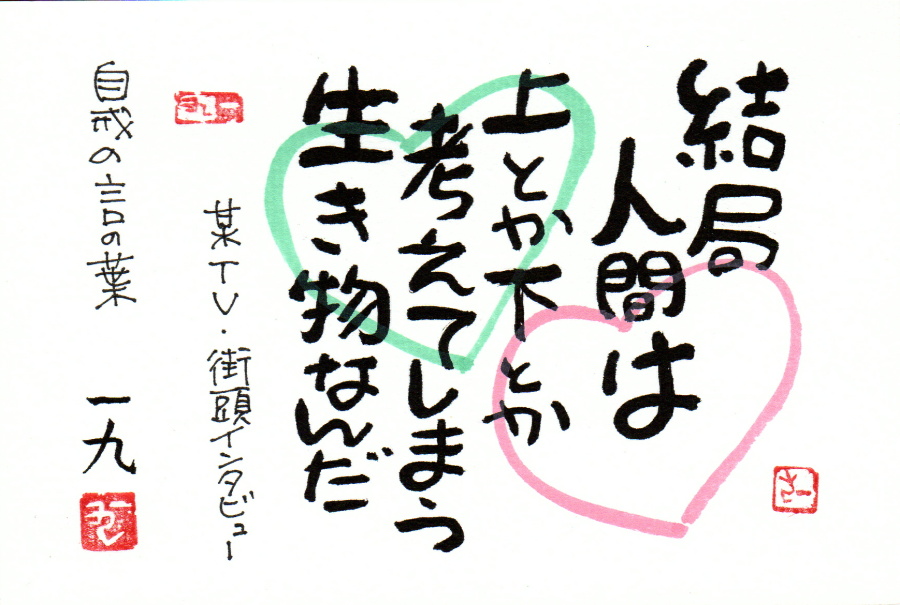 結局
人間は
上とか下とか
考えてしまう
生き物なんだ
某TV・街頭インタビュー
自戒の言の葉
一九